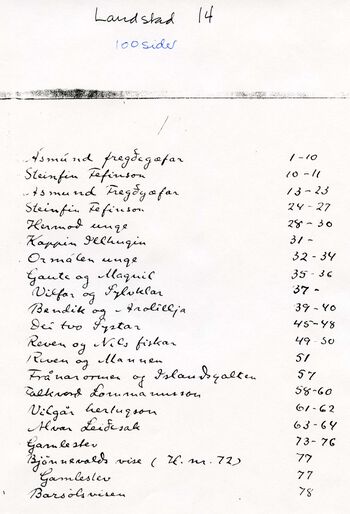 Landstad 14
100 sider
1
Åsmund fregdegæfar 1-10
Steinfin Fefinson 10-11
Åsmund Fregdgæfar 13-23
Steinfin Fefinson 24-27
Hermod unge 28-30
Kappin Illhugin 31-
Ormålen unge 32-34
Gaute og Magnil 35-36
Vilfar og Sylvklar 37-
Bendik og Årolilja 39-40
Dei tvo Systar 45-48
Reven og Nils fiskar 49-50
Reven og Mannen 51
Frånarormen og Islandsgalten 57
Falkvord Lommannsson 58-60
Vilgår hertugson 61-62
Alvar Leidesak 63-64
Gamlestev 73-76
Bjönnevalds vise (H. nr. 72) 77
Gamlestev 77
Barsölsvisen 78